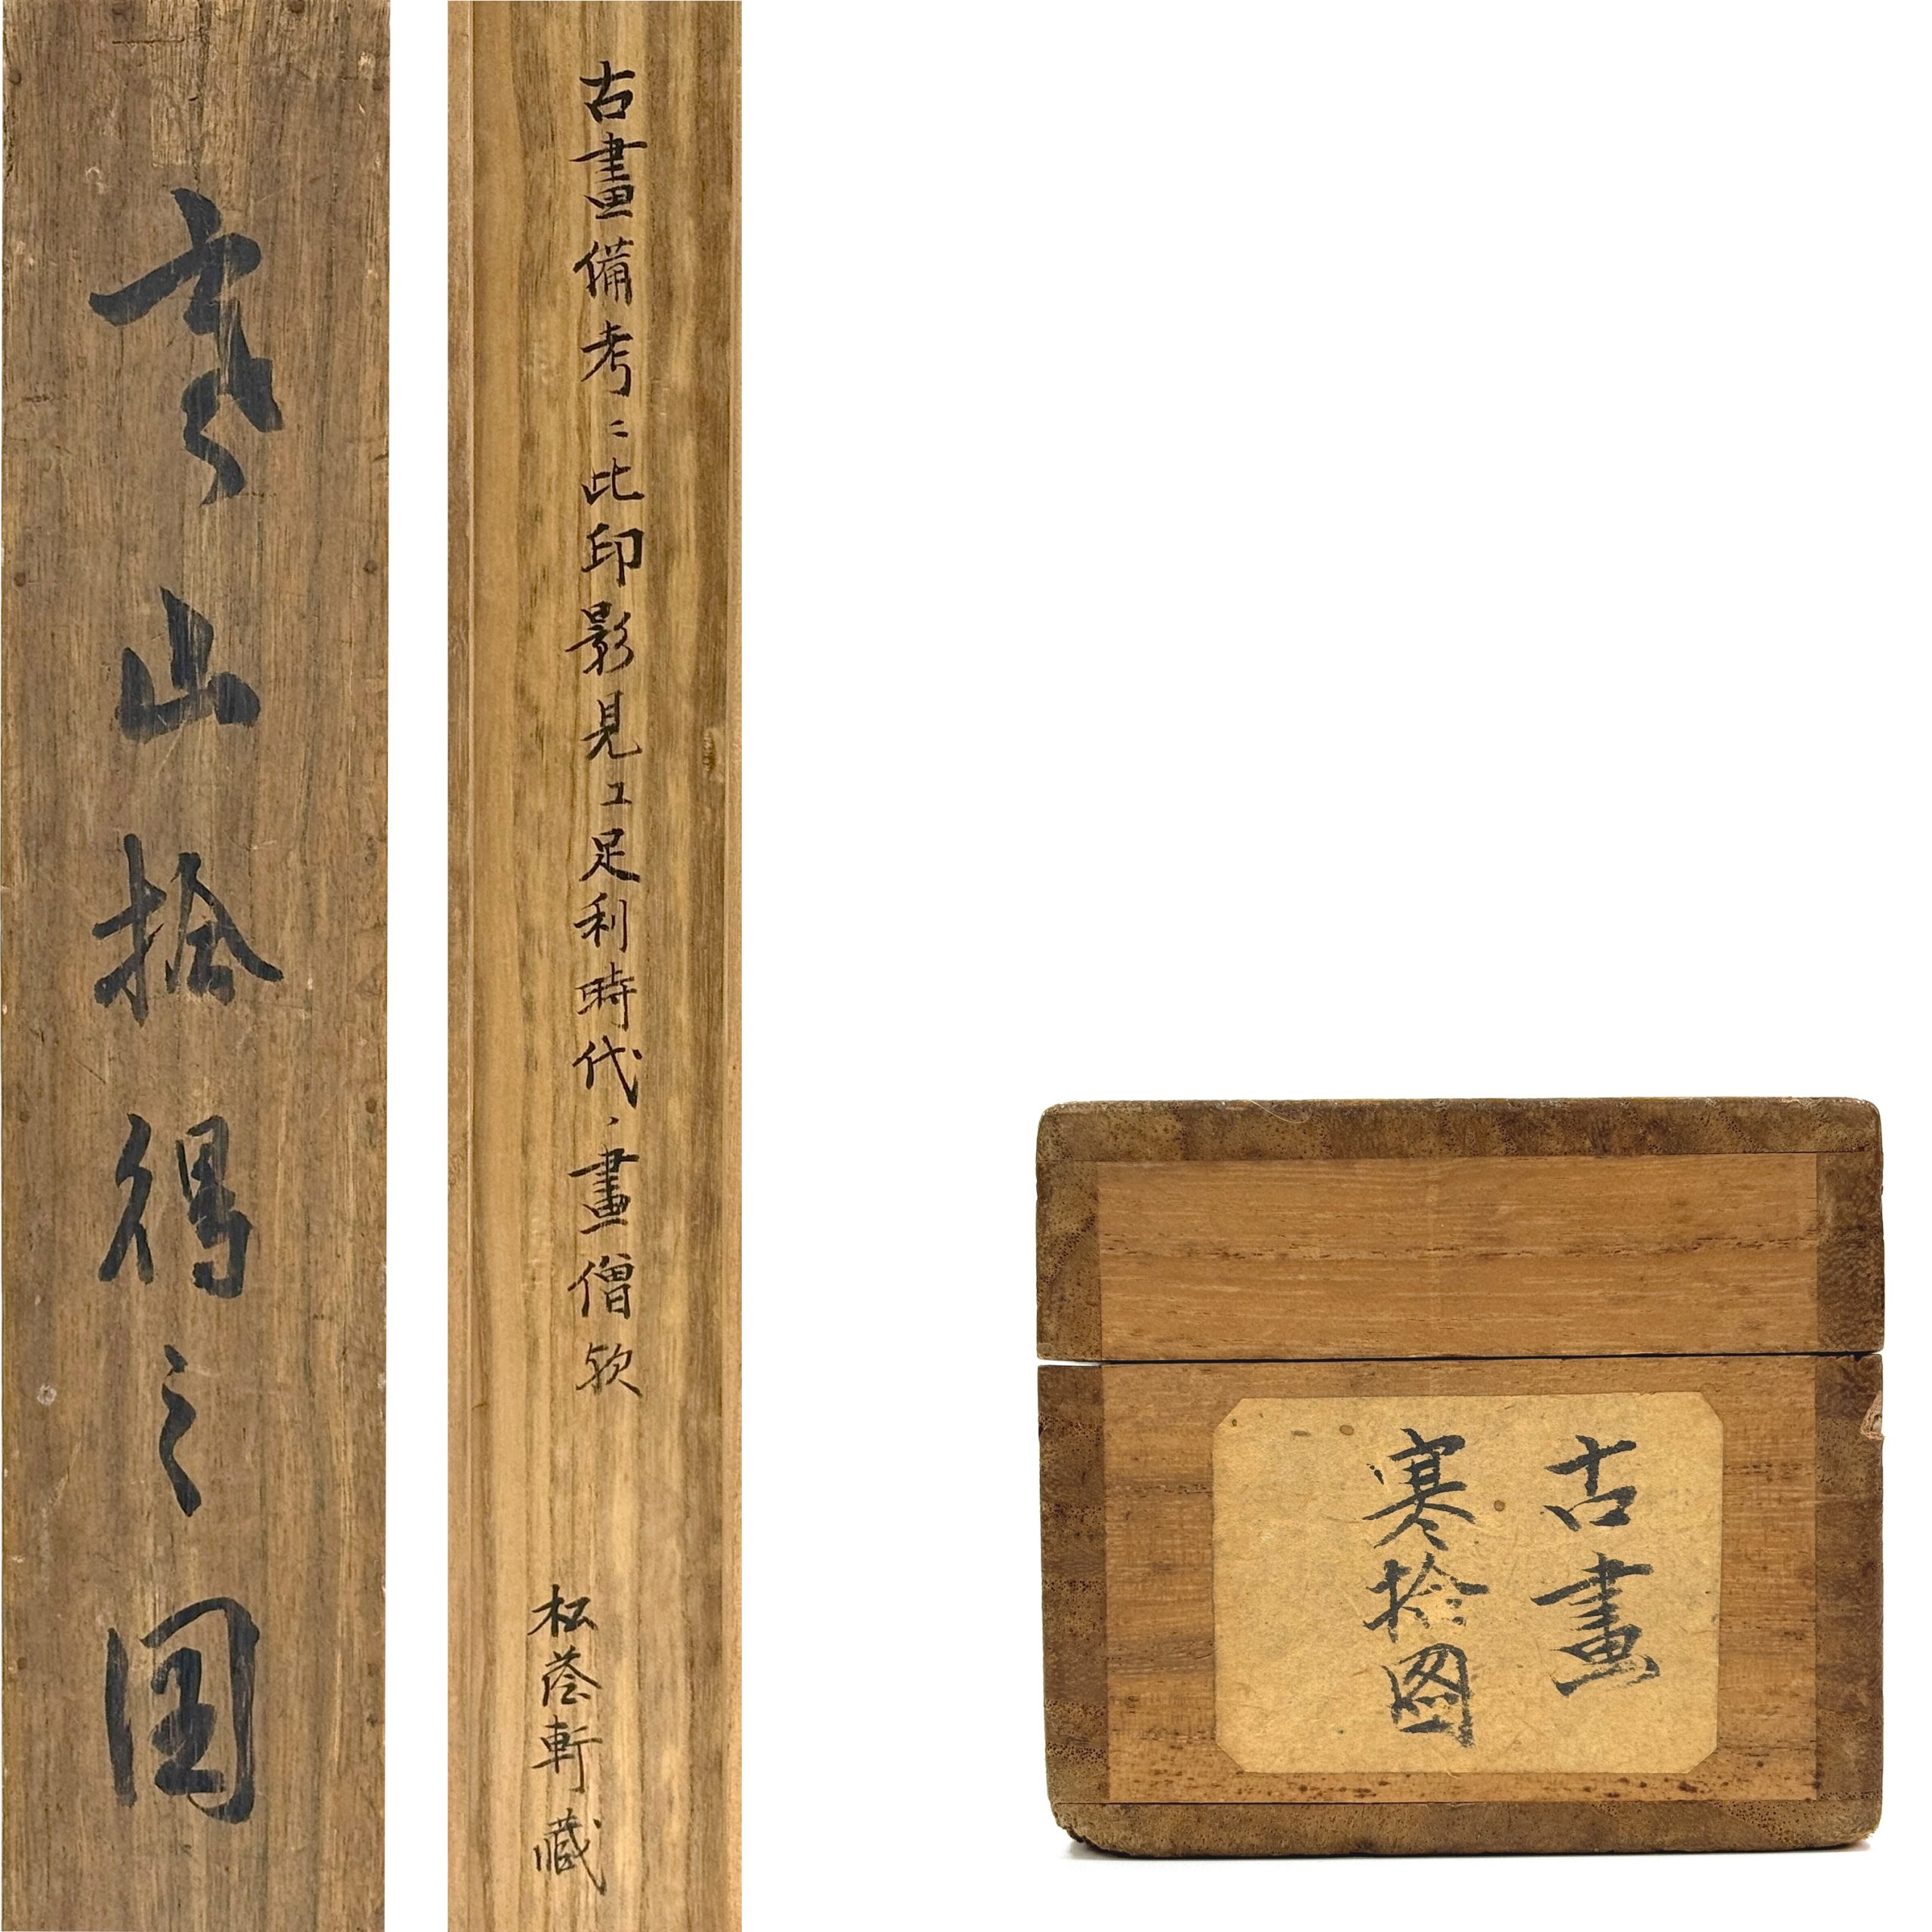 寒山拾得之図
古畫備考ニ比印影見エ足利時代ノ畫僧欤
松蔭軒蔵
古畫
寒拾図